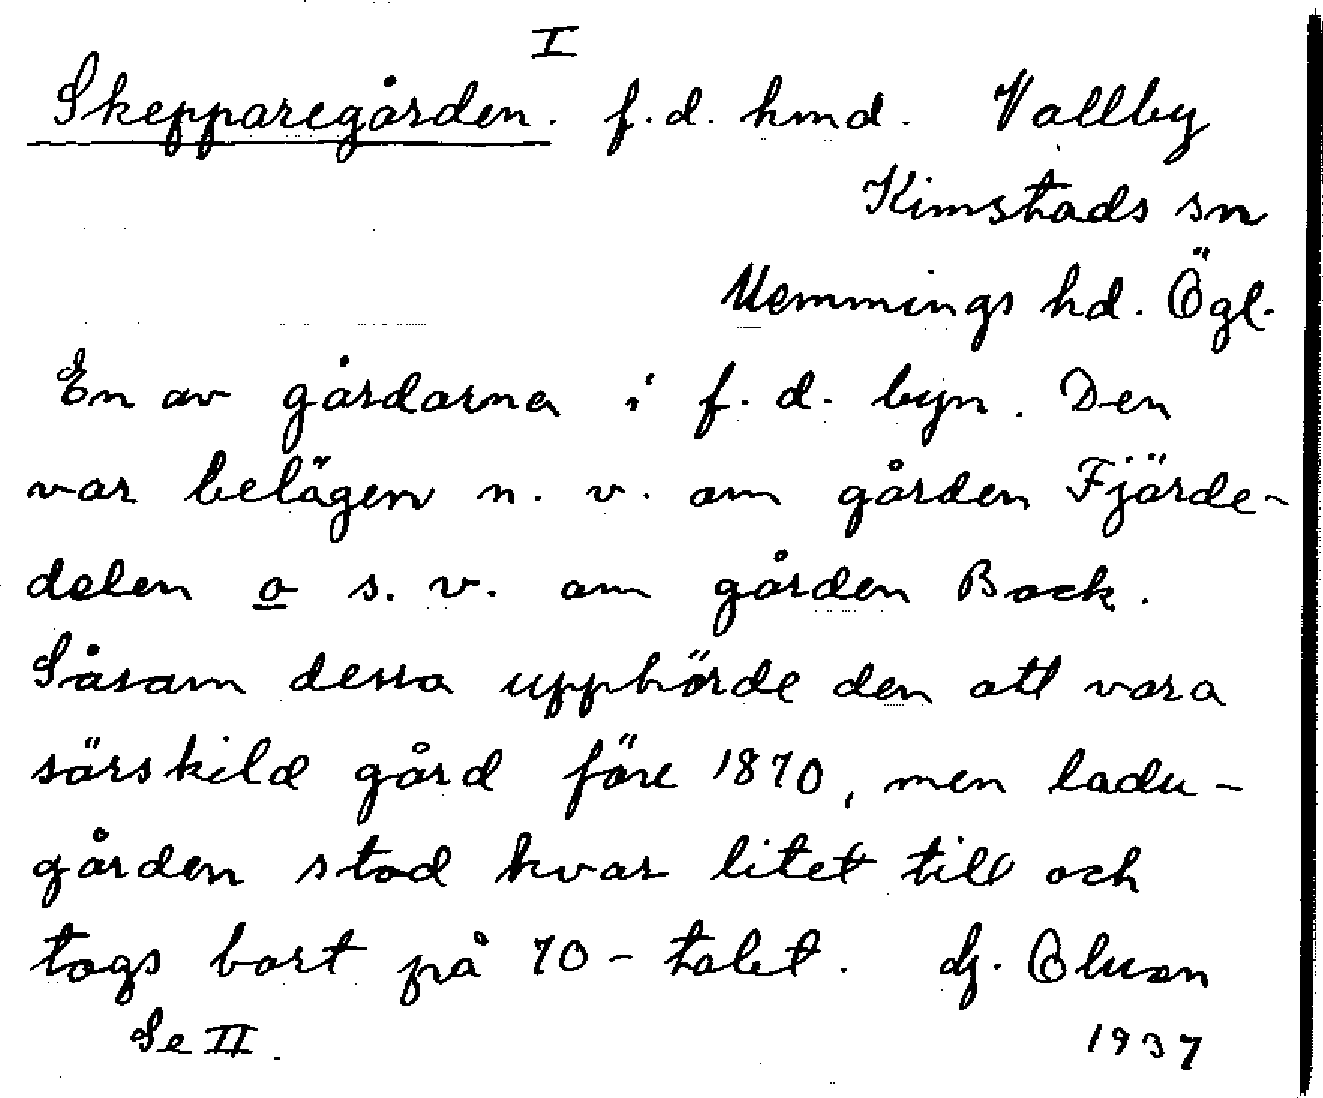 I
Skepparegården. f.d. hmd. Vallby
Kimstads sn
Memmings hd. Ögl.
En av gårdarna i f.d. byn. Den
var belägen n. v. om gården Fjärde-
delen o s. v. om gården Bock.
Såsom dessa upphörde den att vara
särskild gård före 1870, men ladu-
gården stod kvar litet till och
togs bort på 70-talet. Hj. Olson
Se II. 1937